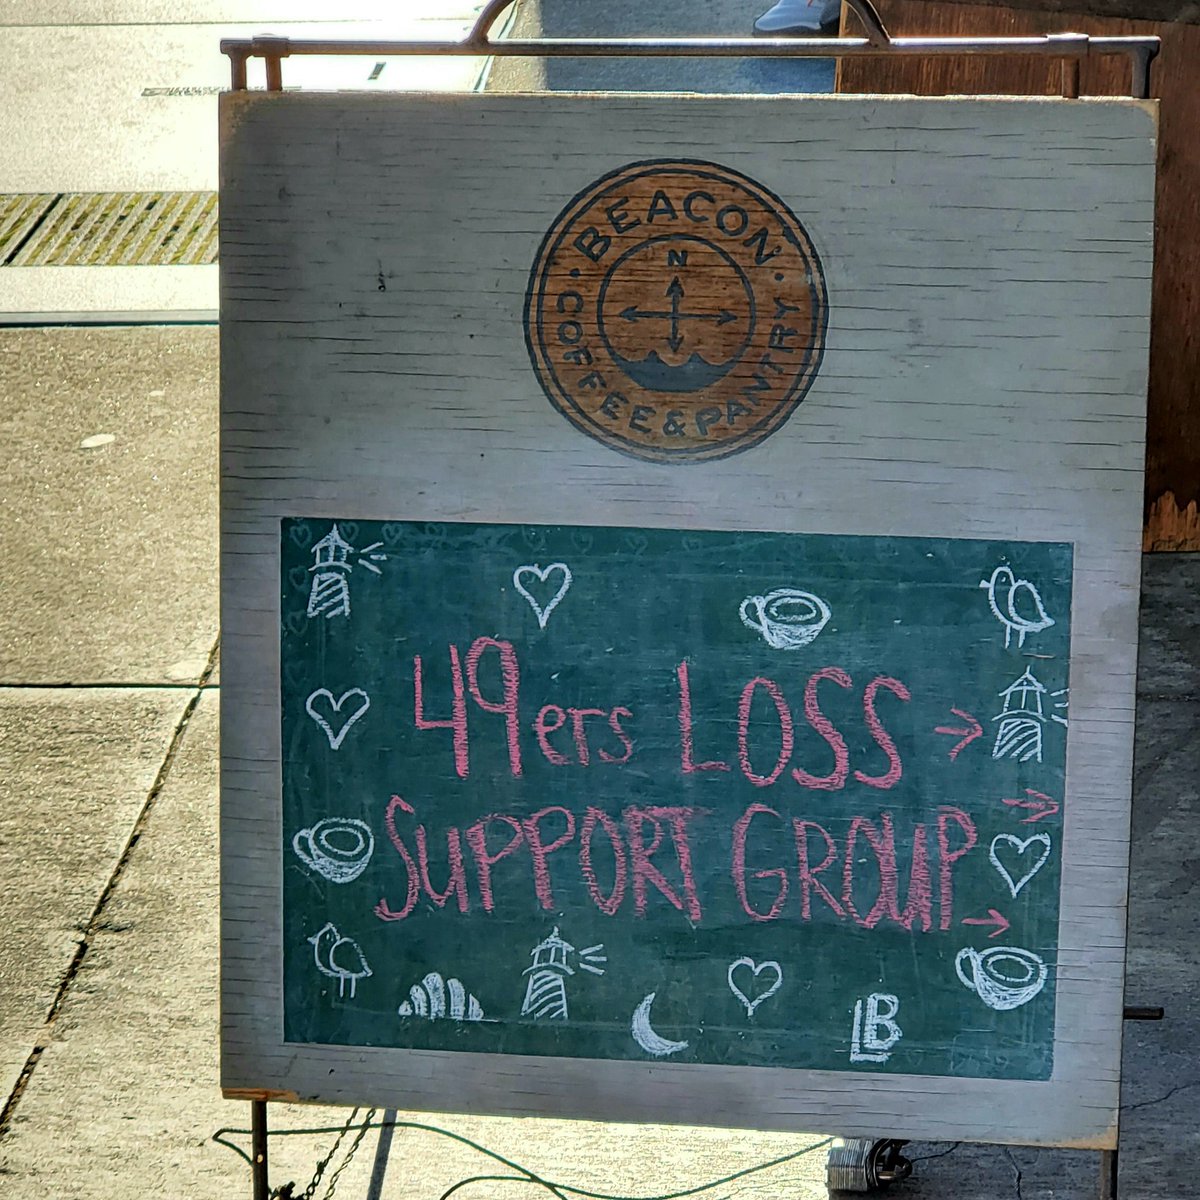 BEACON
N
COFFEE & PANTRY
49ers LOSS
SUPPORT GROUP
LB